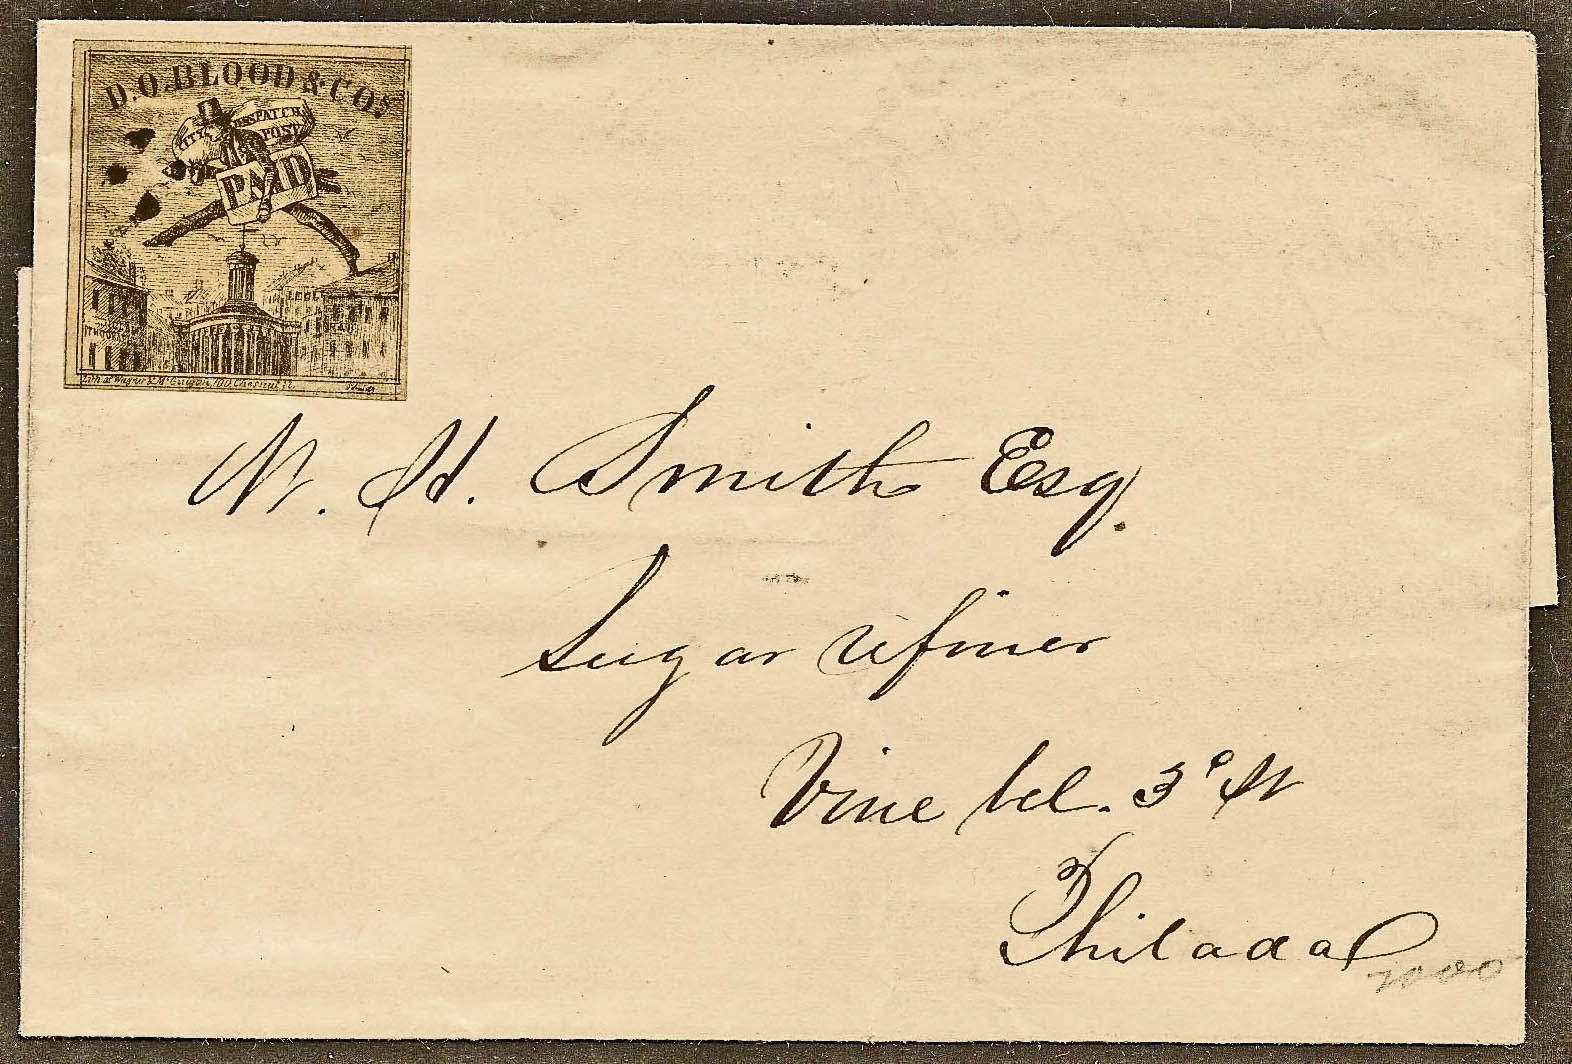 D.O.BLOOD & COs
CITY DESPATCH
POST
PAID
Lith of Wagner & McGuigan, 100, Chesnut St.
W. H. Smith Esq.
Sugar refiner
Vine bel. 3d St
Philada
2000